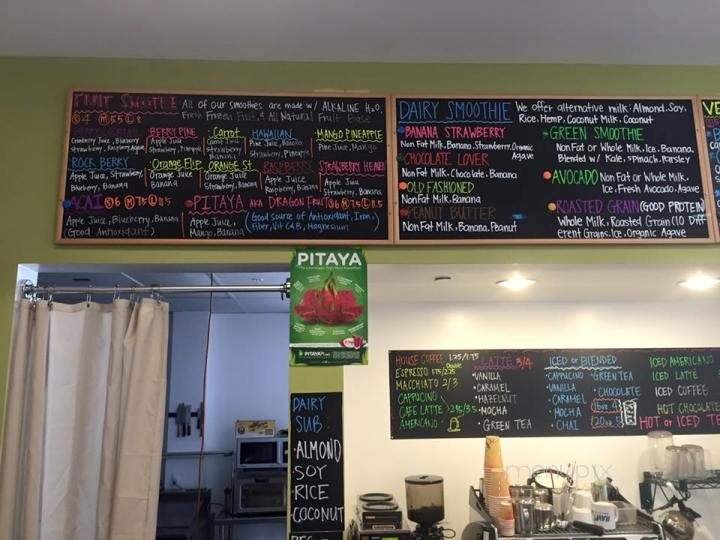 FRUIT SMOOTHIE All of our smoothies are made w/ ALKALINE H2O
Fresh Frozen Fruit & All Natural Fruit Base
S 4 M 5.5 L 8
Cranberry Juice, Blueberry
Strawberry, Raspberry
BERRY PINE
Apple Juice
Strawberry, Pineapple
Carrot
Strawberry, Banana
HAWAIIAN
Pine Juice, Banana
Strawberry, Pineapple
MANGO PINEAPPLE
Pine Juice, Mango
ROCK BERRY
Apple Juice, Strawberry,
Blueberry, Banana
Orange Flip
Orange Juice
Banana
ORANGE St
Orange Juice
Strawberry, Banana
RASPBERRY
Apple Juice
Raspberry, Banana
STRAWBERRY HEAVEN
Apple Juice
Strawberry, Banana
ACAI S 6 M 7.5 L 11.5
Apple Juice, Blueberry, Banana
(Good Antioxidant)
PITAYA AKA DRAGON FRUIT S 6 M 7.5 L 11.5
Apple Juice,
Mango, Banana
(Good source of Antioxidant, Iron,
Fiber, Vit C&B, Magnesium)
DAIRY SMOOTHIE We offer alternative milk: Almond, Soy,
Rice, Hemp, Coconut Milk, Coconut
BANANA STRAWBERRY
Non Fat Milk, Banana, Strawberry, Organic
Agave
CHOCOLATE LOVER
Non Fat Milk, Chocolate, Banana
OLD FASHIONED
Non Fat Milk, Banana
PEANUT BUTTER
Non Fat Milk, Banana, Peanut
GREEN SMOOTHIE
Non Fat or Whole Milk, Ice, Banana,
Blended w/ Kale, Spinach, Parsley
AVOCADO Non Fat or Whole Milk,
Ice, Fresh Avocado, Agave
ROASTED GRAIN (GOOD PROTEIN
Whole Milk, Roasted Grain (10 Diff
erent Grains, Ice, Organic Agave
VE
PITAYA
PITAYA
DAIRY
SUB
·ALMOND
SOY
RICE
COCONUT
HOUSE COFFEE 1.25/1.75
ESPRESSO 1.75/2.25 Double
MACCHIATO 2/3
CAPPUCINO
CAFE LATTE 2.95/3.5
AMERICANO
LATTE 3/4
·VANILLA
·CARAMEL
·HAZELNUT
·MOCHA
·GREEN TEA
ICED or BLENDED
·CAPPUCINO
·VANILLA
·CARAMEL
·MOCHA
·CHAI
·GREEN TEA
·CHOCOLATE
16oz 4
20oz 5
ICED AMERICANO
ICED LATTE
ICED COFFEE
HOT CHOCOLATE
HOT or ICED TEA
menupix